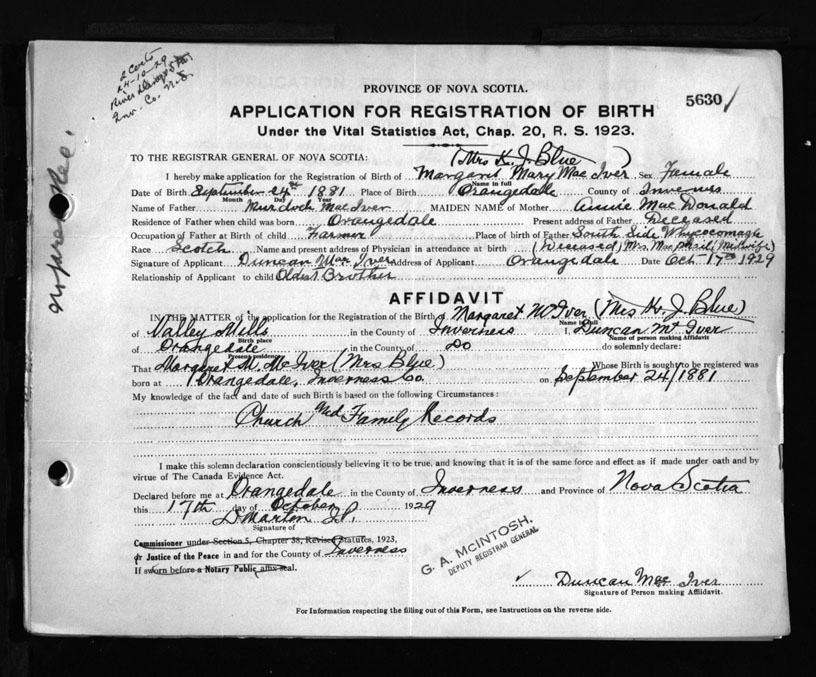 2 Certs
24-10-29
River Denys Stn
Inv. Co. N.S.
no prev. Rec.
PROVINCE OF NOVA SCOTIA.
5630
APPLICATION FOR REGISTRATION OF BIRTH
Under the Vital Statistics Act, Chap. 20, R. S. 1923.
TO THE REGISTRAR GENERAL OF NOVA SCOTIA: (Mrs K. J. Blue)
I hereby make application for the Registration of Birth of Margaret Mary Mac Iver Sex Female
Name in full
Date of Birth September 24th 1881 Place of Birth Orangedale County of Inverness
Month Day Year
Name of Father Murdoch Mac Iver MAIDEN NAME of Mother Annie Mac Donald
Residence of Father when child was born Orangedale Present address of Father Deceased
Occupation of Father at Birth of child Farmer Place of birth of Father South Side Whycocomagh
Race Scotch Name and present address of Physician in attendance at birth (Deceased) Mrs. MacPhail (Midwife)
Signature of Applicant Duncan Mac Iver Address of Applicant Orangedale Date Oct 17th 1929
Relationship of Applicant to child Oldest Brother
AFFIDAVIT
IN THE MATTER of the application for the Registration of the Birth of Margaret McIver (Mrs K. J. Blue)
Name in full
of Valley Mills in the County of Inverness I, Duncan Mc Iver
Birth place Name of person making Affidavit
of Orangedale in the County of Do do solemnly declare:
Present residence
That Margaret M. McIver (Mrs Blue) Whose Birth is sought to be registered was
born at Orangedale, Inverness Co. on September 24/1881
My knowledge of the fact and date of such Birth is based on the following Circumstances:
Church and Family Records
I make this solemn declaration conscientiously believing it to be true, and knowing that it is of the same force and effect as if made under oath and by
virtue of The Canada Evidence Act.
Declared before me at Orangedale in the County of Inverness and Province of Nova Scotia
this 17th day of October 1929
D Martin J.P.
Signature of
Commissioner under Section 5, Chapter 38, Revised Statutes, 1923,
or Justice of the Peace in and for the County of Inverness
If sworn before a Notary Public, affix seal.
G. A. McINTOSH,
DEPUTY REGISTRAR GENERAL
Duncan Mac Iver
Signature of Person making Affidavit.
For Information respecting the filling out of this Form, see Instructions on the reverse side.